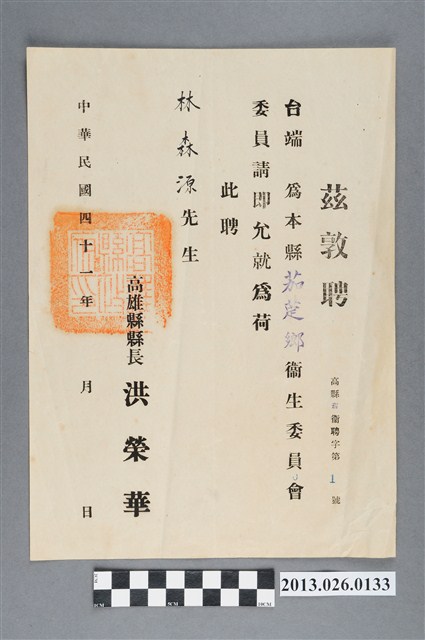 茲敦聘
高縣 衛聘字第 1 號
台端為本縣茄萣鄉衞生委員會
委員請即允就為荷
此聘
林森源先生
高雄縣縣長洪榮華
中華民國四十一年 月 日
5CM
10CM
2013.026.0133